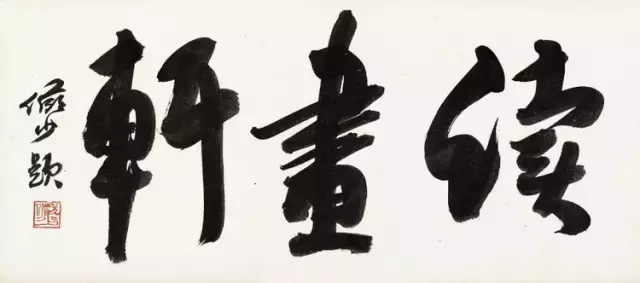 讀畫軒
儼少題